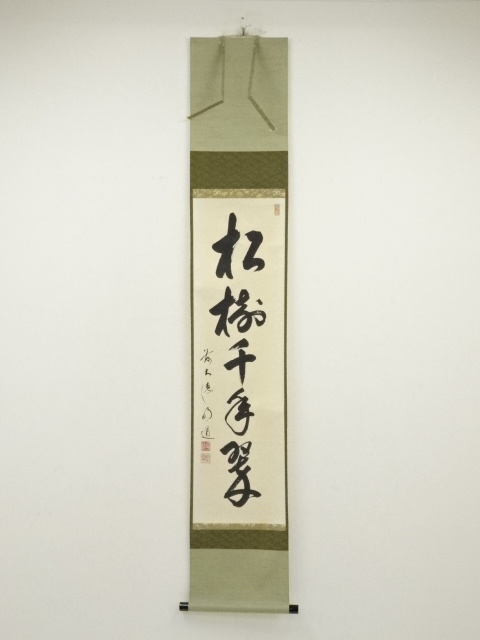 松樹千年翠
前大徳明道